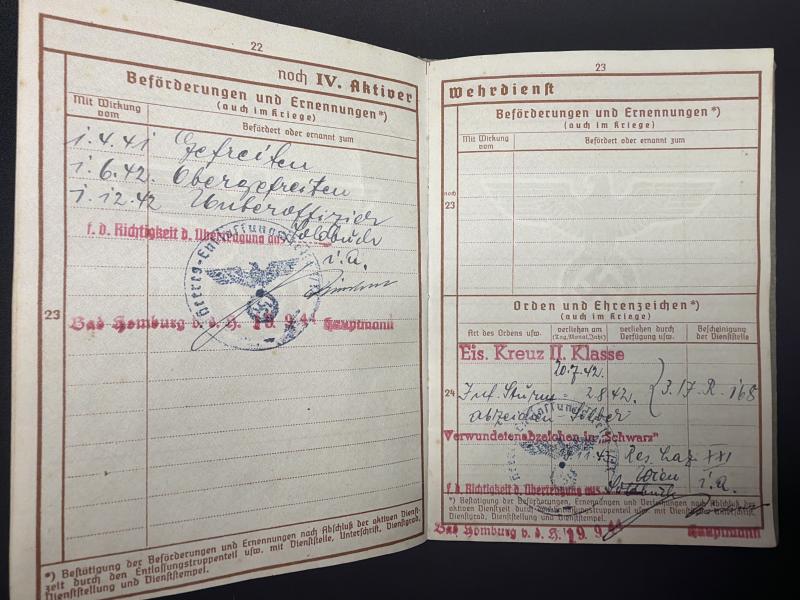 22
noch IV. Aktiver
Beförderungen und Ernennungen*)
(auch im Kriege)
Mit Wirkung vom
Befördert oder ernannt zum
1.4.41 Gefreiten
1.6.42. Obergefreiten
1.12.42 Unteroffizier
f. d. Richtigkeit d. Übertragung aus Soldbuch
i.A.
23
Bad Homburg v. d. H. 19. 9. 44 Hauptmann
*) Bestätigung der Beförderungen und Ernennungen nach Abschluß der aktiven Dienst-
zeit durch den Entlassungstruppenteil usw. mit Dienststelle, Unterschrift, Dienstgrad,
Dienststellung und Dienststempel.
23
Wehrdienst
Beförderungen und Ernennungen*)
(auch im Kriege)
Mit Wirkung vom
Befördert oder ernannt zum
noch
23
Orden und Ehrenzeichen*)
(auch im Kriege)
Art des Ordens usw.
verliehen am
(Tag, Monat, Jahr)
verliehen durch
Verfügung usw.
Bescheinigung
der Dienststelle
Eis. Kreuz II. Klasse
20.7.42.
24
Inf. Sturm- 2.8.42. 3. I.R.
abzeichen Silber
Verwundetenabzeichen in "Schwarz"
11.43 Res. Laz. XXI
Wien
f. d. Richtigkeit d. Übertragung aus Soldbuch i.A.
*) Bestätigung der Beförderungen, Ernennungen und Verleihungen nach Abschluß der
aktiven Dienstzeit durch den Entlassungstruppenteil usw. mit Unterschrift,
Dienstgrad, Dienststellung und Dienststempel.
Bad Homburg v. d. H. 19. 9. 44 Hauptmann